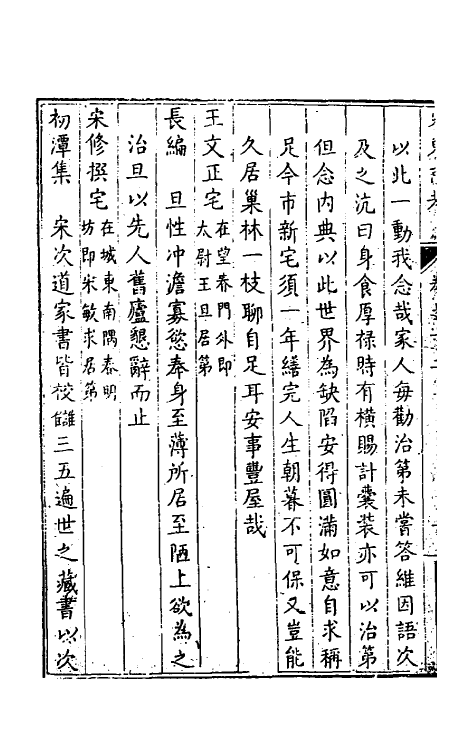 以此一動我念哉家人每勸治第未嘗答維因語次
及之沆曰身食厚禄時有橫賜計囊裝亦可以治第
但念内典以此世界為缺陷安得圓滿如意自求稱
足今市新宅須一年繕完人生朝暮不可保又豈能
久居巢林一枝聊自足耳安事豐屋哉
王文正宅在望春門外即太尉王旦居第
長編　旦性冲澹寡慾奉身至薄所居至陋上欲為之
治旦以先人舊廬懇辭而止
宋修撰宅在城東南隅春明坊即宋敏求居第
初潭集　宋次道家書皆校讎三五遍世之藏書以次